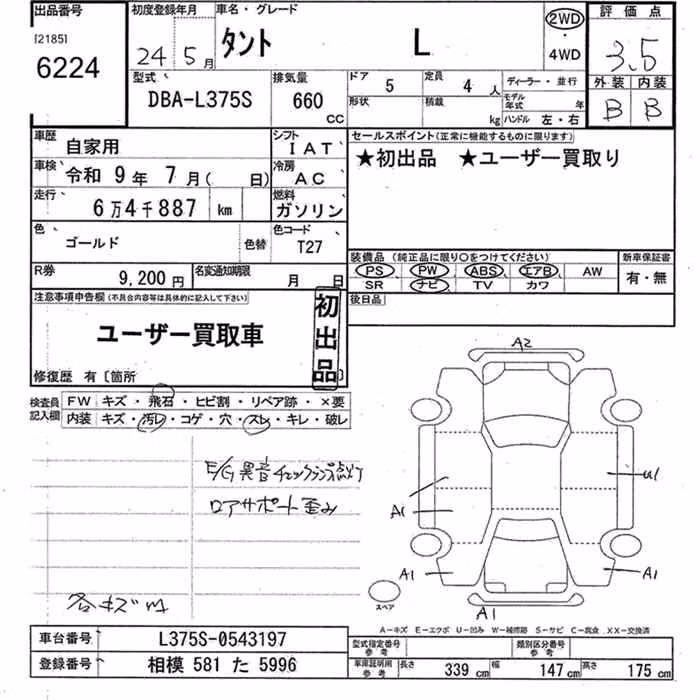 出品番号
[2185]
6224
初度登録年月
24年 5月
車名・グレード
タント L
2WD
・
4WD
評価点
3.5
外装 内装
B B
型式
DBA-L375S
排気量
660 CC
ドア 5
定員 4 人
形状
積載 kg
ディーラー・並行
モデル年式 年
ハンドル 左・右
車歴 自家用
シフト IAT
車検 令和 9年 7月( 日)
冷房 AC
走行 6万4千887 km
燃料 ガソリン
色 ゴールド 色替
色コード T27
R券 9,200円
名変通知期限 月 日
セールスポイント(正常に機能するものに限ります)
★初出品 ★ユーザー買取り
装備品(純正品に限り○をつけてください)
PS PW ABS エアB AW
SR ナビ TV カワ
新車保証書
有・無
後日品
注意事項申告欄(不具合内容等は具体的に記入して下さい)
ユーザー買取車
初出品
修復歴 有〔箇所 〕
検査員記入欄
FW キズ・飛石・ヒビ割・リペア跡・×要
内装 キズ・汚レ・コゲ・穴・スレ・キレ・破レ
E/G異音 チェックランプ点灯
ロアサポート歪み
各キズM
A2
A1
U1
A1
A1
A1
スペア
A―キズ E―エクボ U―凹み W―補修跡 S―サビ C―腐食 XX―交換済
車台番号 L375S-0543197
登録番号 相模 581 た 5996
型式指定番号 参考
類別区分番号 参考
車庫証明用 参考
長さ 339 cm
幅 147 cm
高さ 175 cm